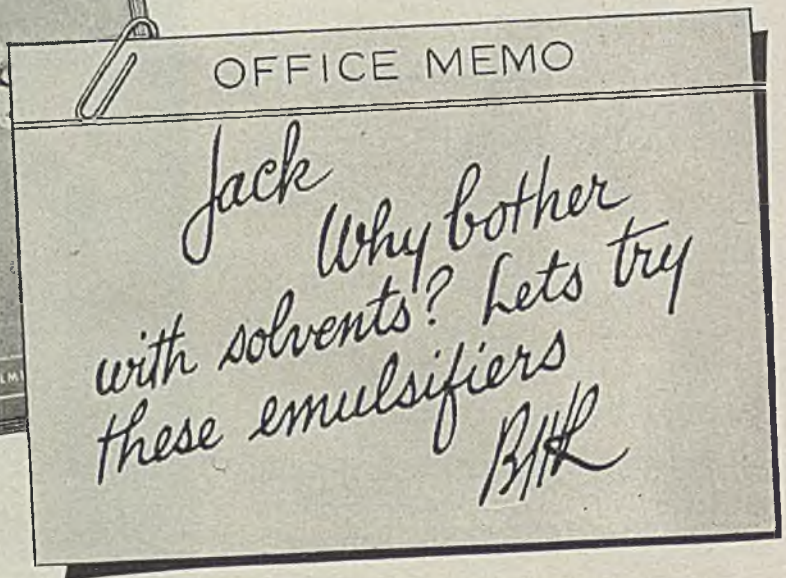 OFFICE MEMO
Jack
Why bother
with solvents? Lets try
these emulsifiers